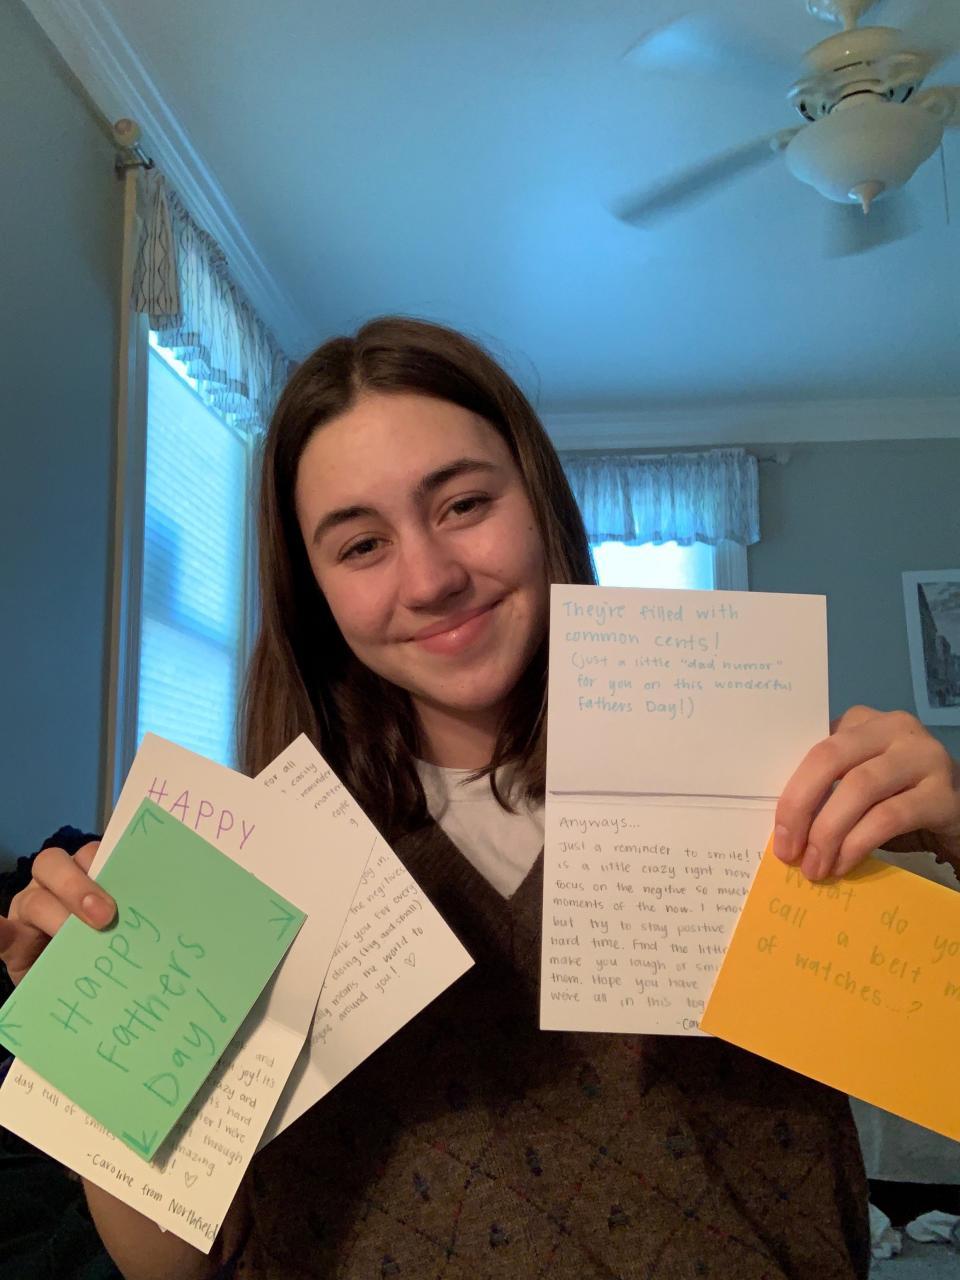 HAPPY
Happy
Fathers
Day!
for all
easily
reminder
joy in.
the negitives
thank you for every
doing (big and small)
means me world to
around you! ♡
and
joy! It's
crazy and
it's hard
we're
through
amazing
day full of smiles
! ♡
-Caroline from Northfield
They're filled with
common cents!
(just a little "dad humor"
for you on this wonderful
Fathers Day!)
Anyways...
Just a reminder to smile!
is a little crazy right now
focus on the negitive so much
moments of the now. I know
but try to stay positive
hard time. Find the little
make you laugh or
them. Hope you have
we're all in this
What do
call a belt
of watches...?